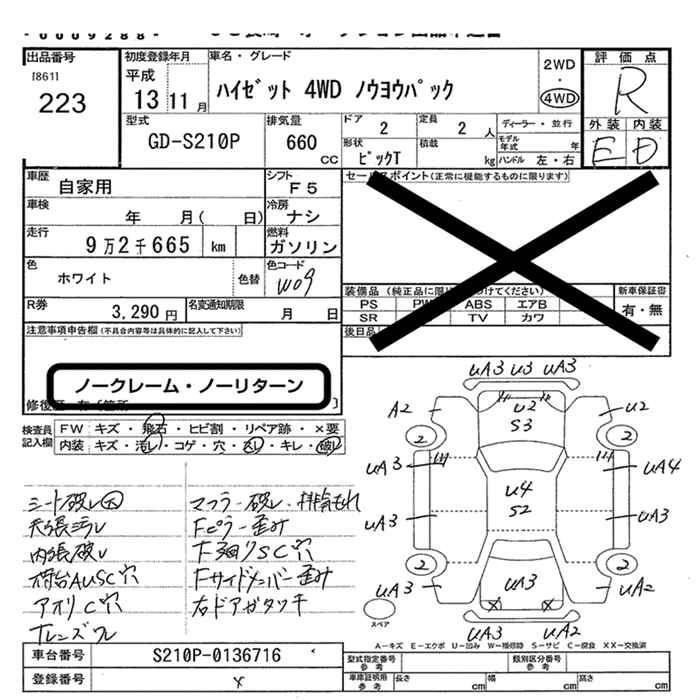 0009288
出品番号
[861]
223
初度登録年月
平成
13 11 月
車名・グレード
ハイゼット 4WD ノウヨウパック
2WD
・
4WD
評価点
R
外装 内装
E D
型式
GD-S210P
排気量
660
cc
ドア
2
定員
2 人
形状
ピックT
積載
kg
ディーラー・並行
モデル年式 年
ハンドル 左・右
車歴
自家用
シフト
F5
車検
年 月( 日)
冷房
ナシ
走行
9万2千665 km
燃料
ガソリン
色
ホワイト
色替
色コード
W09
R券
3,290 円
名変通知期限
月 日
セールスポイント(正常に機能するものに限ります)
装備品
PS PW ABS エアB
SR TV カワ
新車保証書
有・無
後日品
注意事項申告欄(不具合内容等は具体的に記入して下さい)
ノークレーム・ノーリターン
検査員記入欄
FW キズ・飛石・ヒビ割・リペア跡・×要
内装 キズ・汚レ・コゲ・穴・スレ・キレ・破レ
シート破レ大
天張ヨゴレ
内張破レ
荷台AUSC穴
アオリC穴
Tレンズワレ
マフラー破レ・排気もれ
Fピラー歪み
下廻りSC穴
Fサイドメンバー歪み
右ドアガタツキ
UA3 U3 UA3
A2 U2 U2
S3
2 2
UA3 UA4
U4
S2
UA3 UA3
2 2
UA3 UA3 UA2
X X
UA3 UA2
スペア
A-キズ E-エクボ U-凹み W-補修跡 S-サビ C-腐食 XX-交換済
車台番号
S210P-0136716
登録番号
×
型式指定番号
参考
類別区分番号
参考
車庫証明用
参考
長さ cm 幅 cm 高さ cm